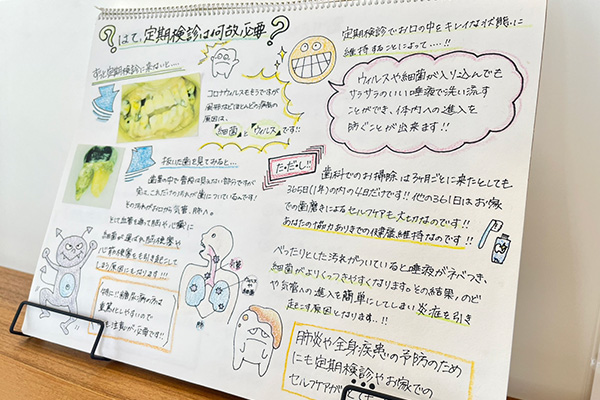 はて、定期検診は何故必要?
中々定期検診に来ないと…
コロナウィルスもそうですが
風邪などほとんどの病気の
原因は、
「細菌」と「ウィルス」です!!
抜いた歯を見てみると…
歯茎の中で普段は見えない部分ですが
実は、これだけの汚れが歯についているんです!
その汚れがお口から気管、肺へ。
そして血管を通って脳や心臓に
細菌が運ばれ脳梗塞や
心筋梗塞をも引き起こして
しまう原因にもなります!!!
気管
肺
特に!!糖尿病の方は
重篤化しやすいので
も注意が必要です!!
定期検診でお口の中をキレイな状態に
維持することによって……!!
ウィルスや細菌が入り込んでも
サラサラのいい唾液で洗い流す
ことができ、体内への進入を
防ぐことが出来ます!!
た・だ・し!!
歯科でのお掃除は3ヶ月ごとに来たとしても
365日(1年)の内の4日だけです!!他の361日はお家
での歯磨きによるセルフケアも大切なのです!!
あなたの協力ありきでの健康維持なのです!!
べったりとした汚れがついていると唾液がネバつき、
細菌がよりくっつきやすくなります。その結果、のど
や気管への進入を簡単にしてしまい炎症を引き
起こす原因となります..!!
肺炎や全身疾患の予防のため
にも定期検診やお家での
セルフケアが